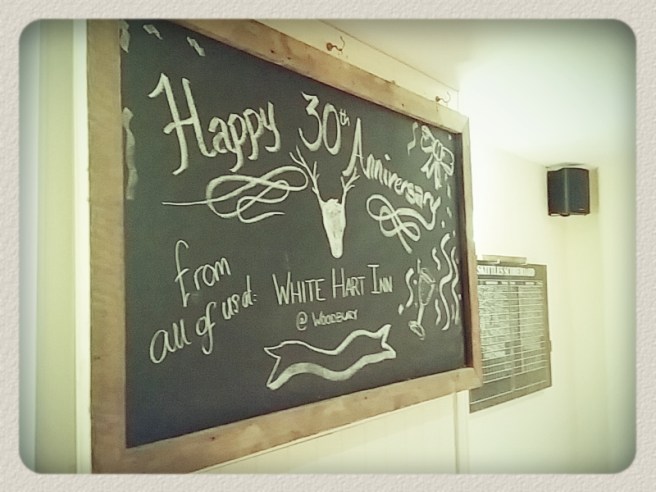 Happy 30th Anniversary
from
all of us at:
WHITE HART INN
@ WOODBURY
SKITTLES SCOREBOARD